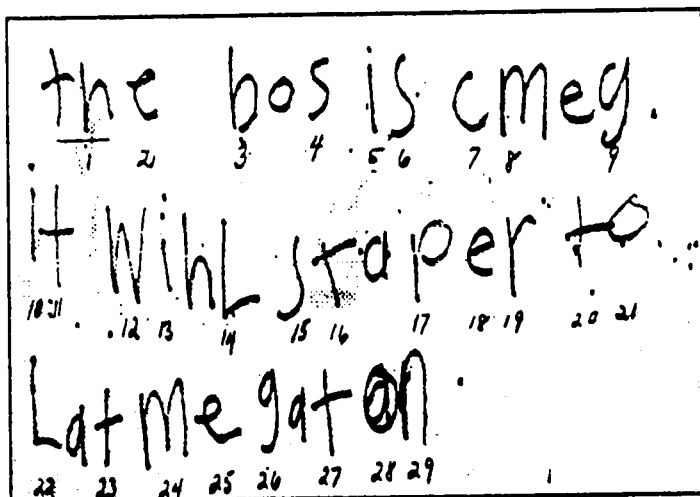 the bos is cmeg.
1 2 3 4 5 6 7 8 9
it WihL staper to
10 11 12 13 14 15 16 17 18 19 20 21
Lat me gat an.
22 23 24 25 26 27 28 29